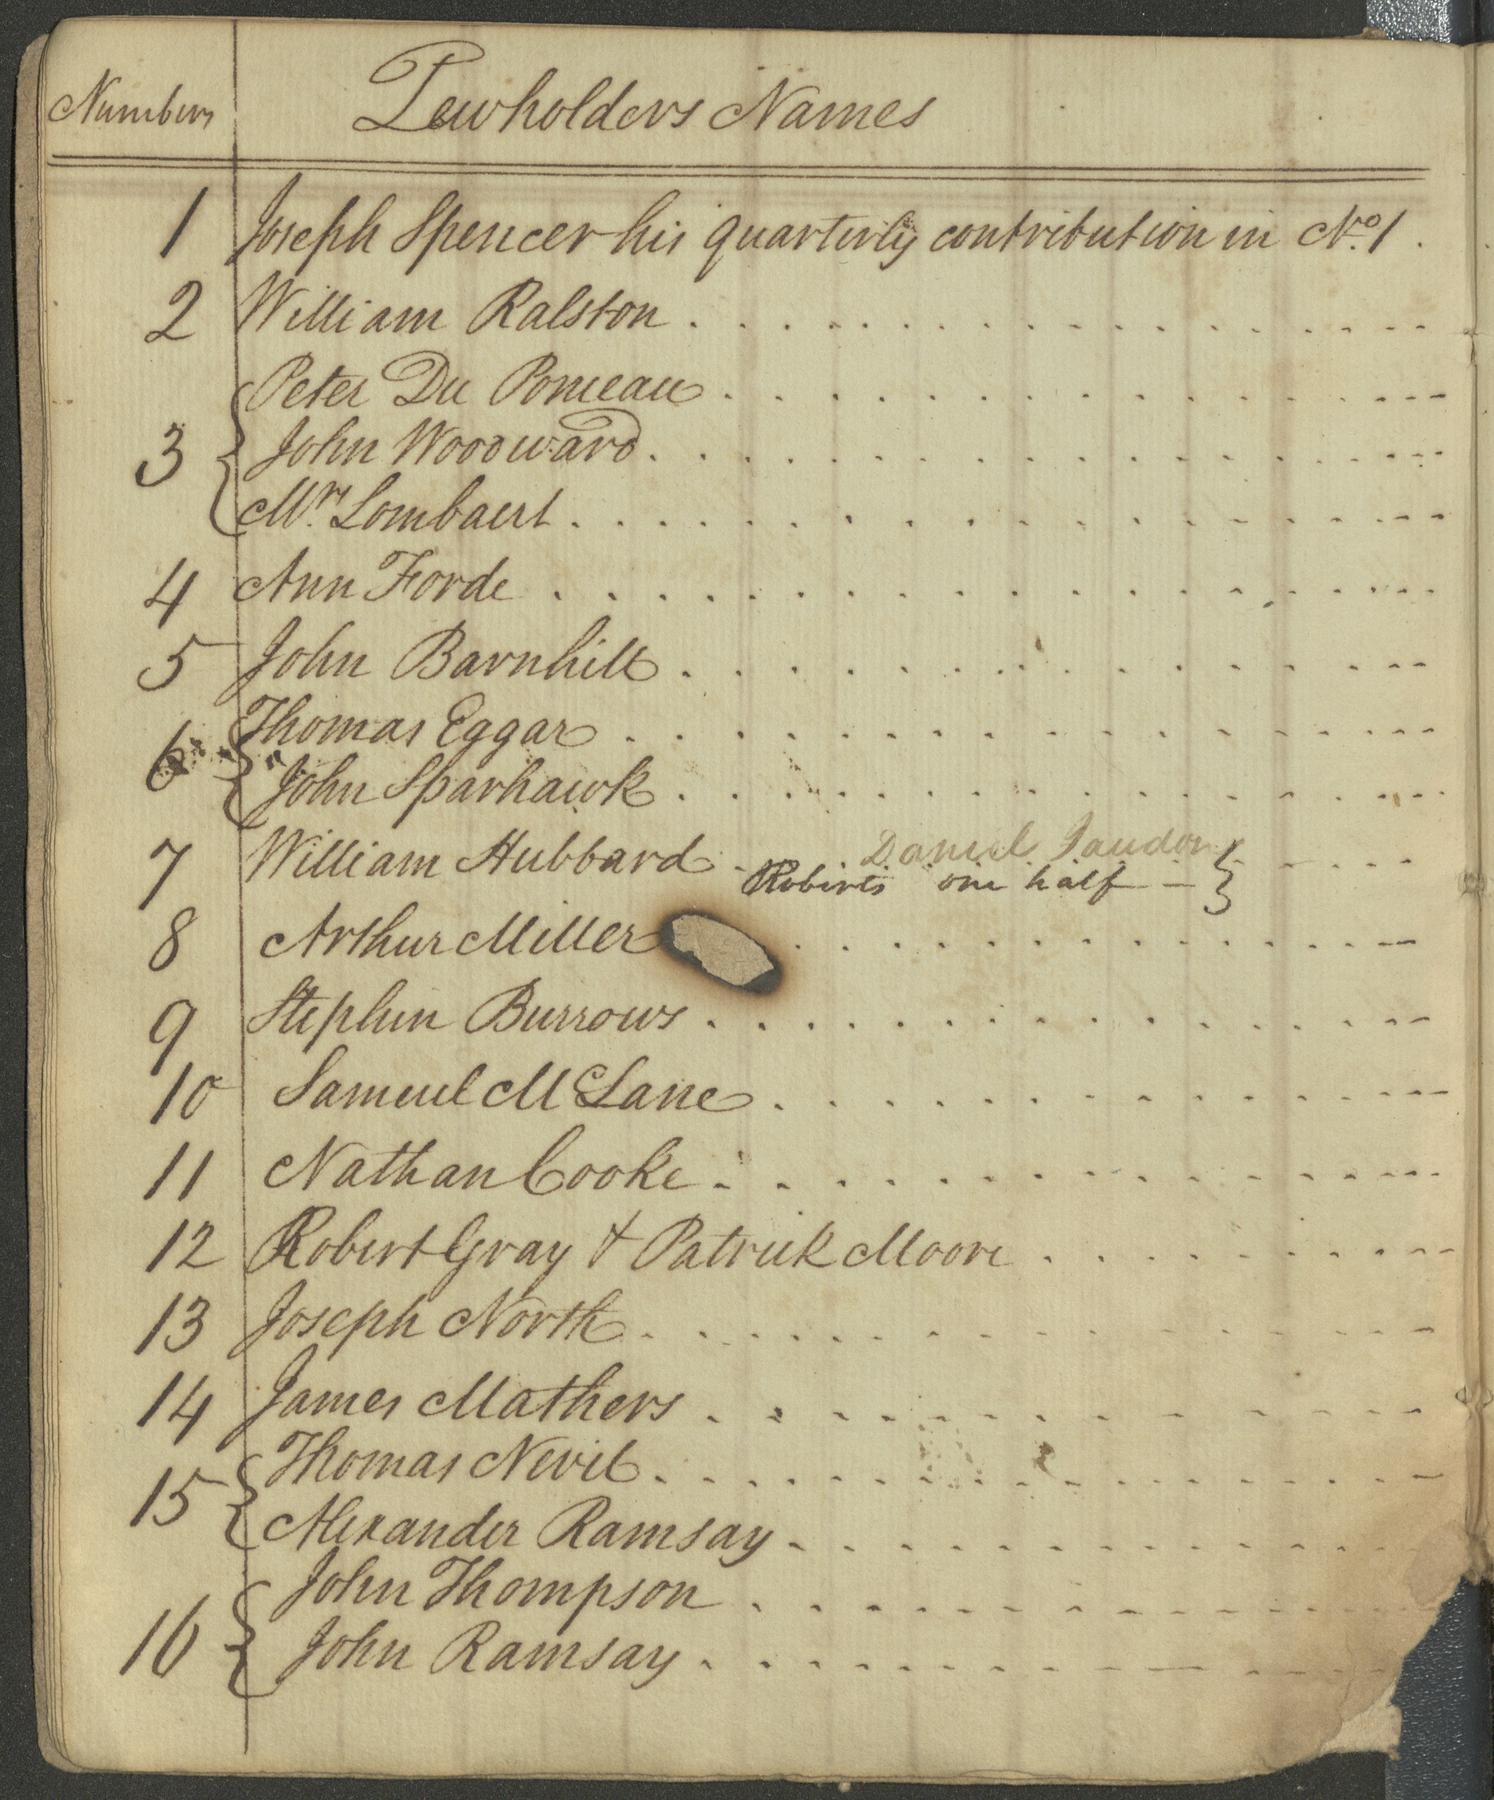 Numbers Pewholders Names
1 Joseph Spencer his quarterly contribution in No. 1.
2 William Ralston
Peter Du Ponceau
3 John Woodward
Mr. Lombaert
4 Ann Forde
5 John Barnhill
Thomas Eggar
6 John Sparhawk
7 William Hubbard Daniel Jaudon
Roberts one half
8 Arthur Miller
9 Stephen Burrows
10 Samuel McLane
11 Nathan Cooke
12 Robert Gray & Patrick Moore
13 Joseph North
14 James Mathers
Thomas Nevil
15 Alexander Ramsay
John Thompson
16 John Ramsay